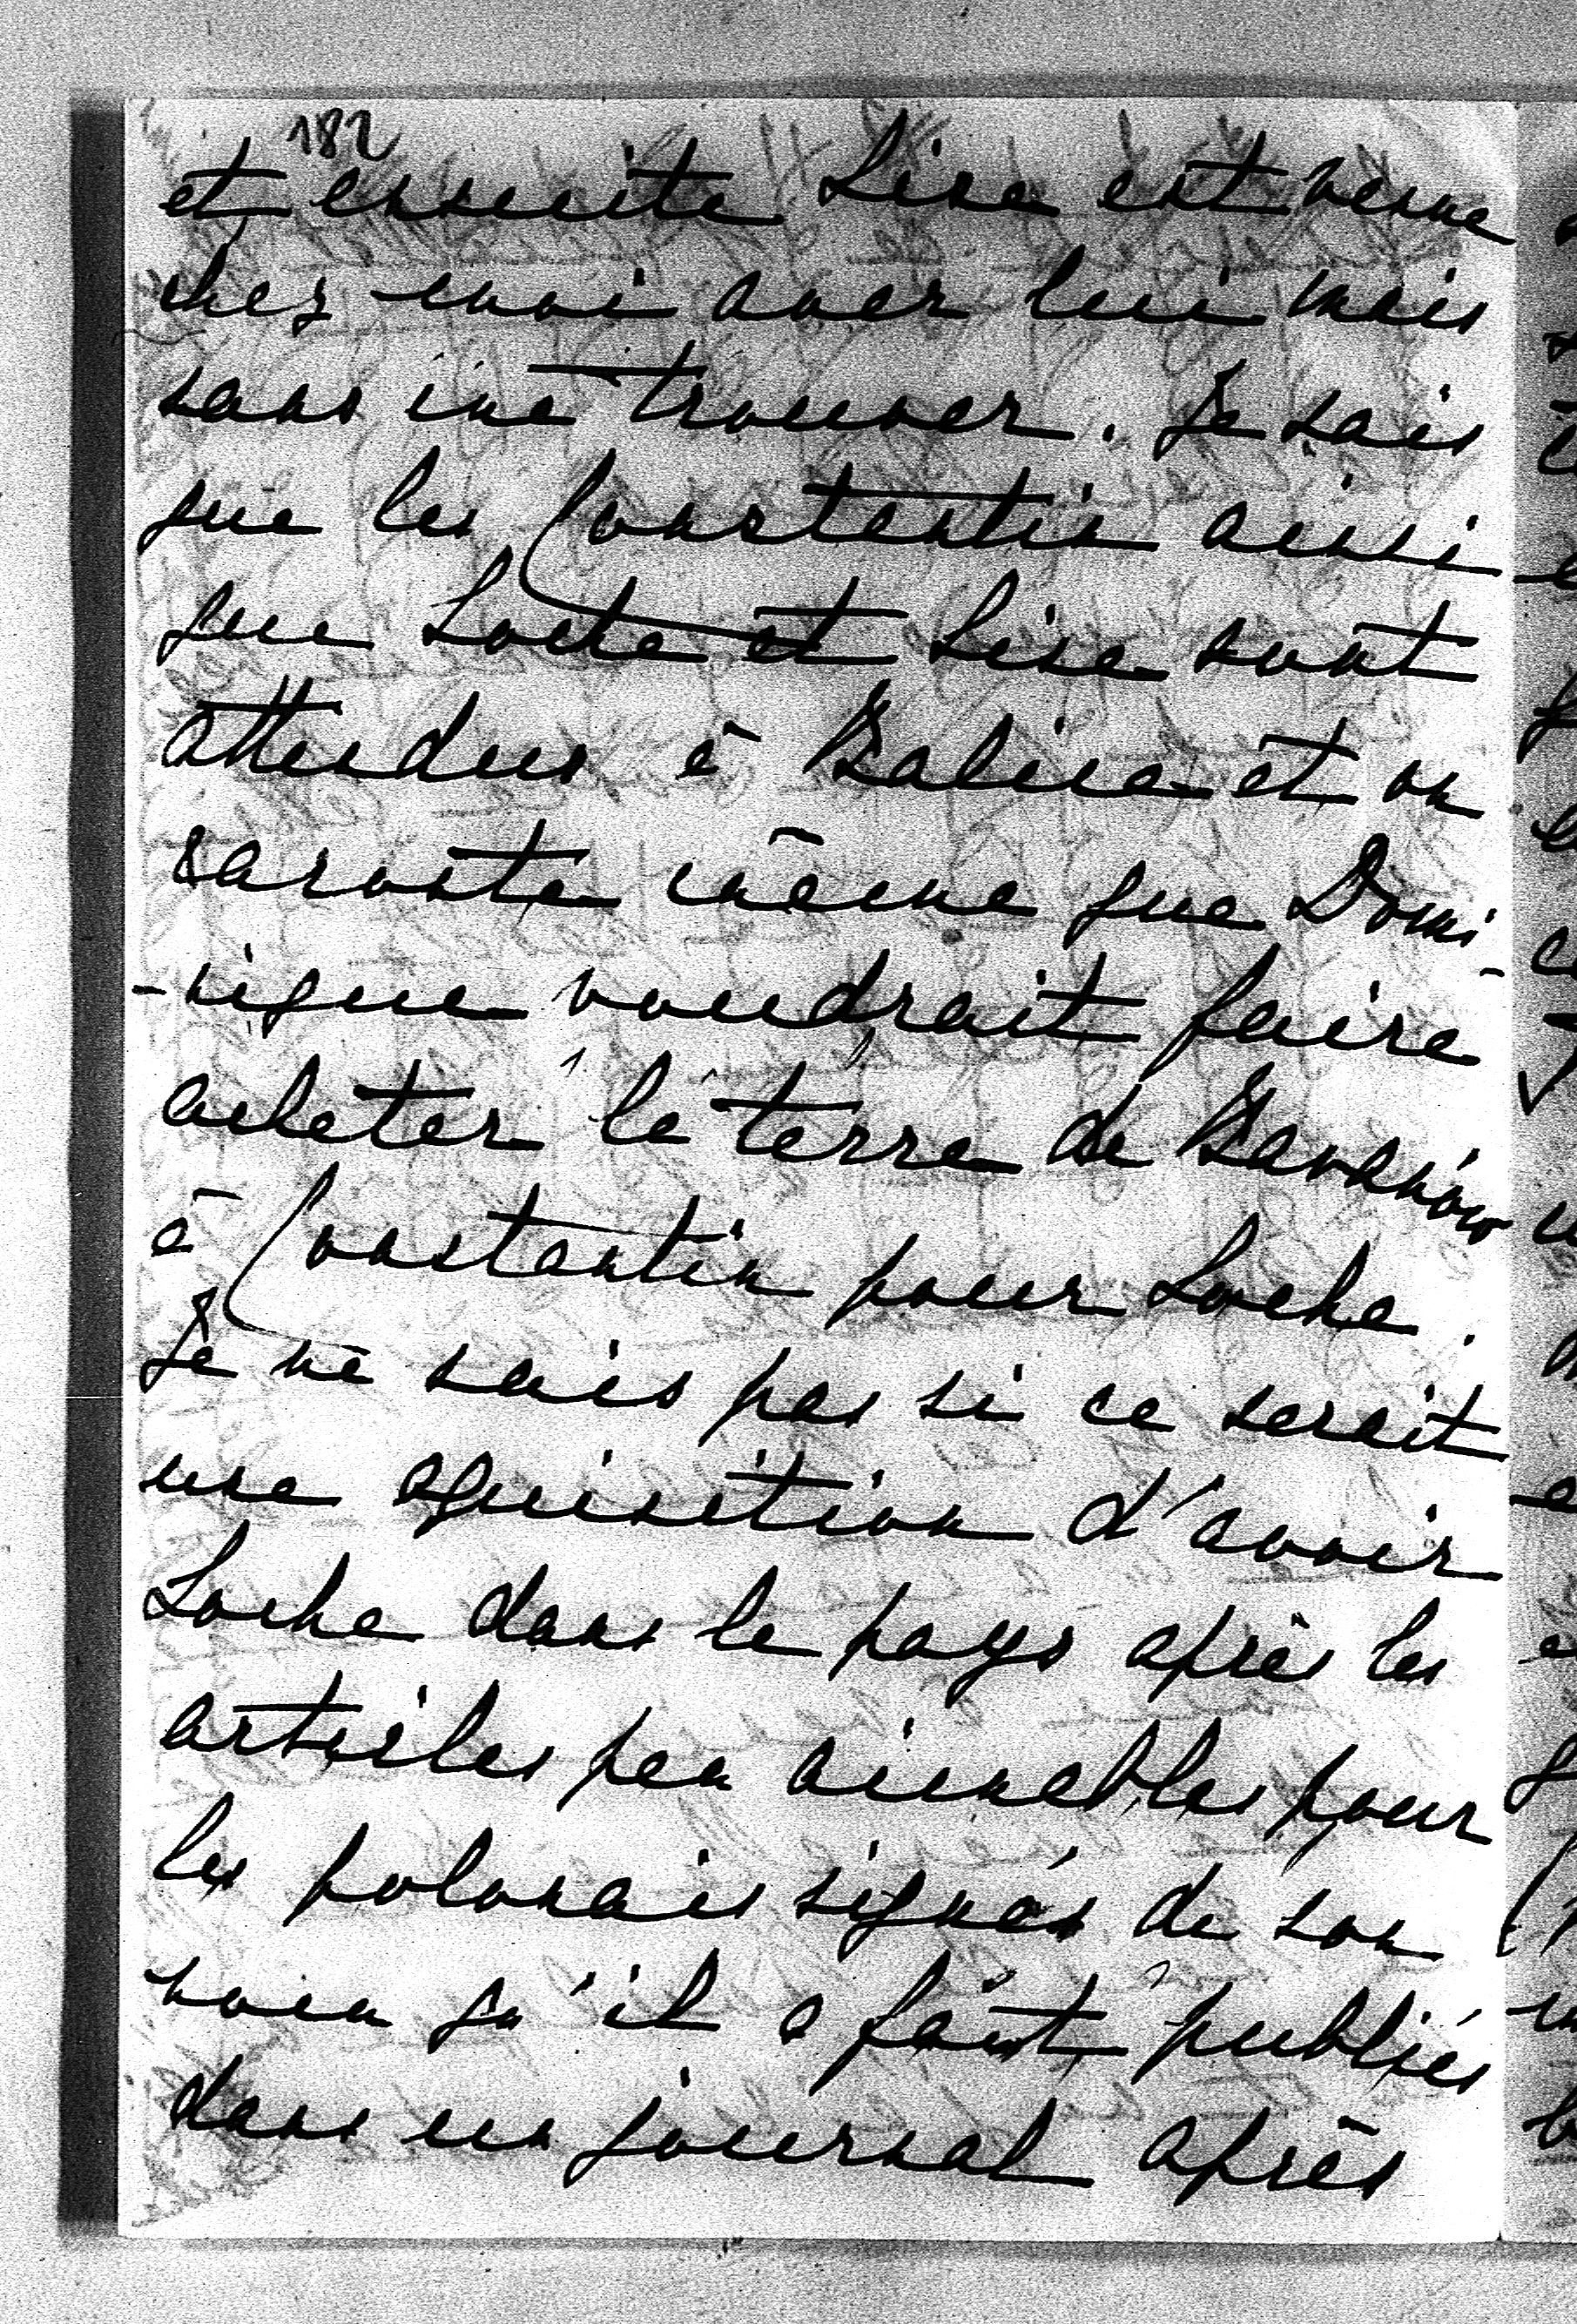 182
et ensuite Lise est venue
chez moi avec lui mais
sans me trouver. Je sais
que les Constantin ainsi
que Loche et Lise sont
attendus à Balice et on
raconte même que Domi
-nique voudrait faire
acheter la terre de Baranów
à Constantin pour Loche.
Je ne sais pas si ce serait
une aquisition d'avoir
Loche dans le pays après les
articles peu aimables pour
les polonais signés de son
nom qu'il a fait publiés
dans un journal après